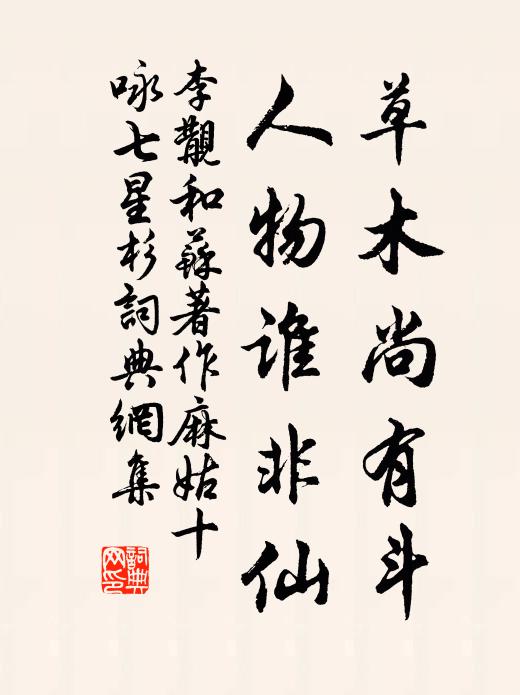 草木尚有斗
人物谁非仙
李覯和蘇著作麻姑十
咏七星杉詞典網集
詞典网印